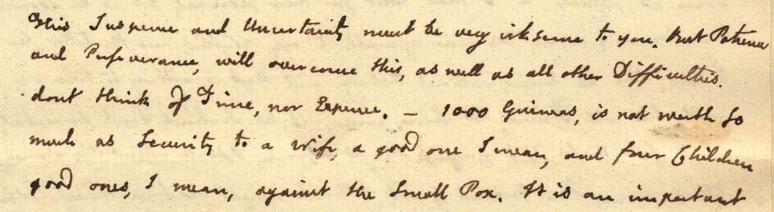 This Suspence and Uncertainty must be very irksome to you. But Patience
and Perseverance, will overcome this, as well as all other Difficulties.
dont think of Time, nor Expence. — 1000 Guineas, is not worth so
much as Security to a Wife, a good one I mean, and four Children
good ones, I mean, against the Small Pox. It is an important